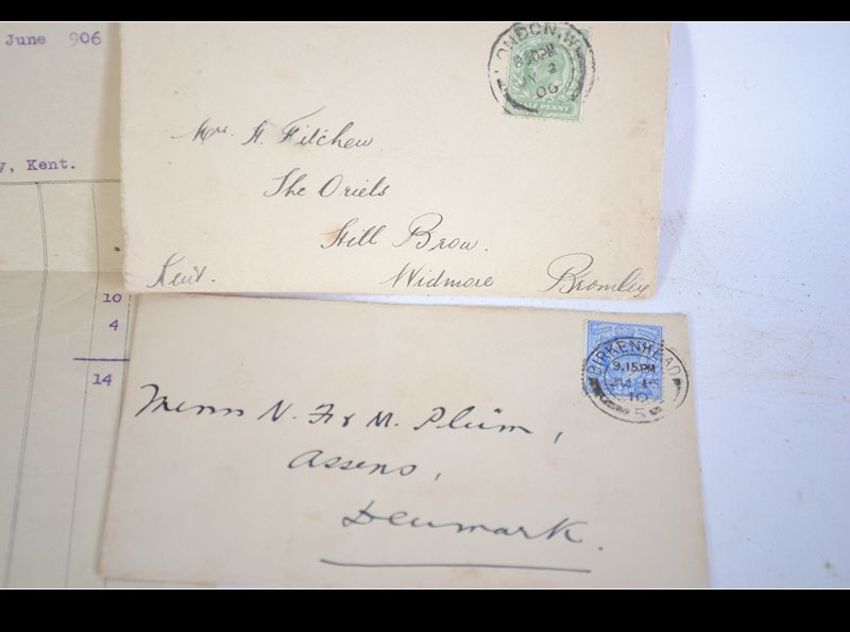 June 906
Kent.
10
4
14
LONDON.W
8.30PM
2
06
HALF PENNY
Mrs. H. Fitchew
The Oriels
Hill Brow.
Kent. Widmore Bromley
BIRKENHEAD
9.15PM
10
5
Messrs N. F. & M. Plüm,
Assens,
Denmark.